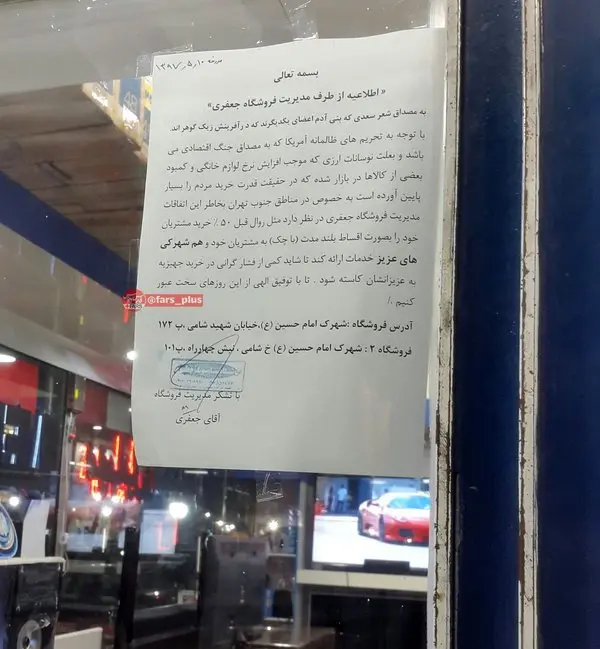 مورخه ۱۳۹۷٫۵٫۱۰
بسمه تعالی
« اطلاعیه از طرف مدیریت فروشگاه جعفری»
به مصداق شعر سعدی که بنی آدم اعضای یکدیگرند که در آفرینش زیک گوهراند.
با توجه به تحریم های ظالمانه آمریکا که به مصداق جنگ اقتصادی می
باشد و بعلت نوسانات ارزی که موجب افزایش نرخ لوازم خانگی و کمبود
بعضی از کالاها در بازار شده که در حقیقت قدرت خرید مردم را بسیار
پایین آورده است به خصوص در مناطق جنوب تهران بخاطر این اتفاقات
مدیریت فروشگاه جعفری در نظر دارد مثل روال قبل ۵۰ ٪ خرید مشتریان
خود را بصورت اقساط بلند مدت (با چک) به مشتریان خود و هم شهرکی
های عزیز خدمات ارائه کند تا شاید کمی از فشار گرانی در خرید جهیزیه
به عزیزانشان کاسته شود . تا با توفیق الهی از این روزهای سخت عبور
کنیم ./
@fars_plus
آدرس فروشگاه :شهرک امام حسین (ع)،خیابان شهید شامی ،پ ۱۷۲
فروشگاه ۲ : شهرک امام حسین (ع) خ شامی ، نبش چهارراه ،پ۱۰۱
با تشکر مدیریت فروشگاه
آقای جعفری